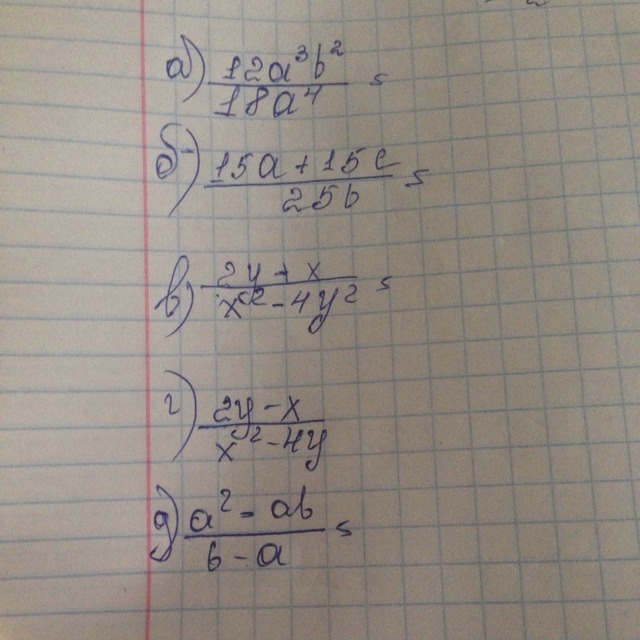 а) 12a³b² / 18a⁴ =
б) 15a + 15c / 25b =
в) 2y - x / x² - 4y² =
г) 2y - x / x² - 4y
д) a² - ab / b - a =